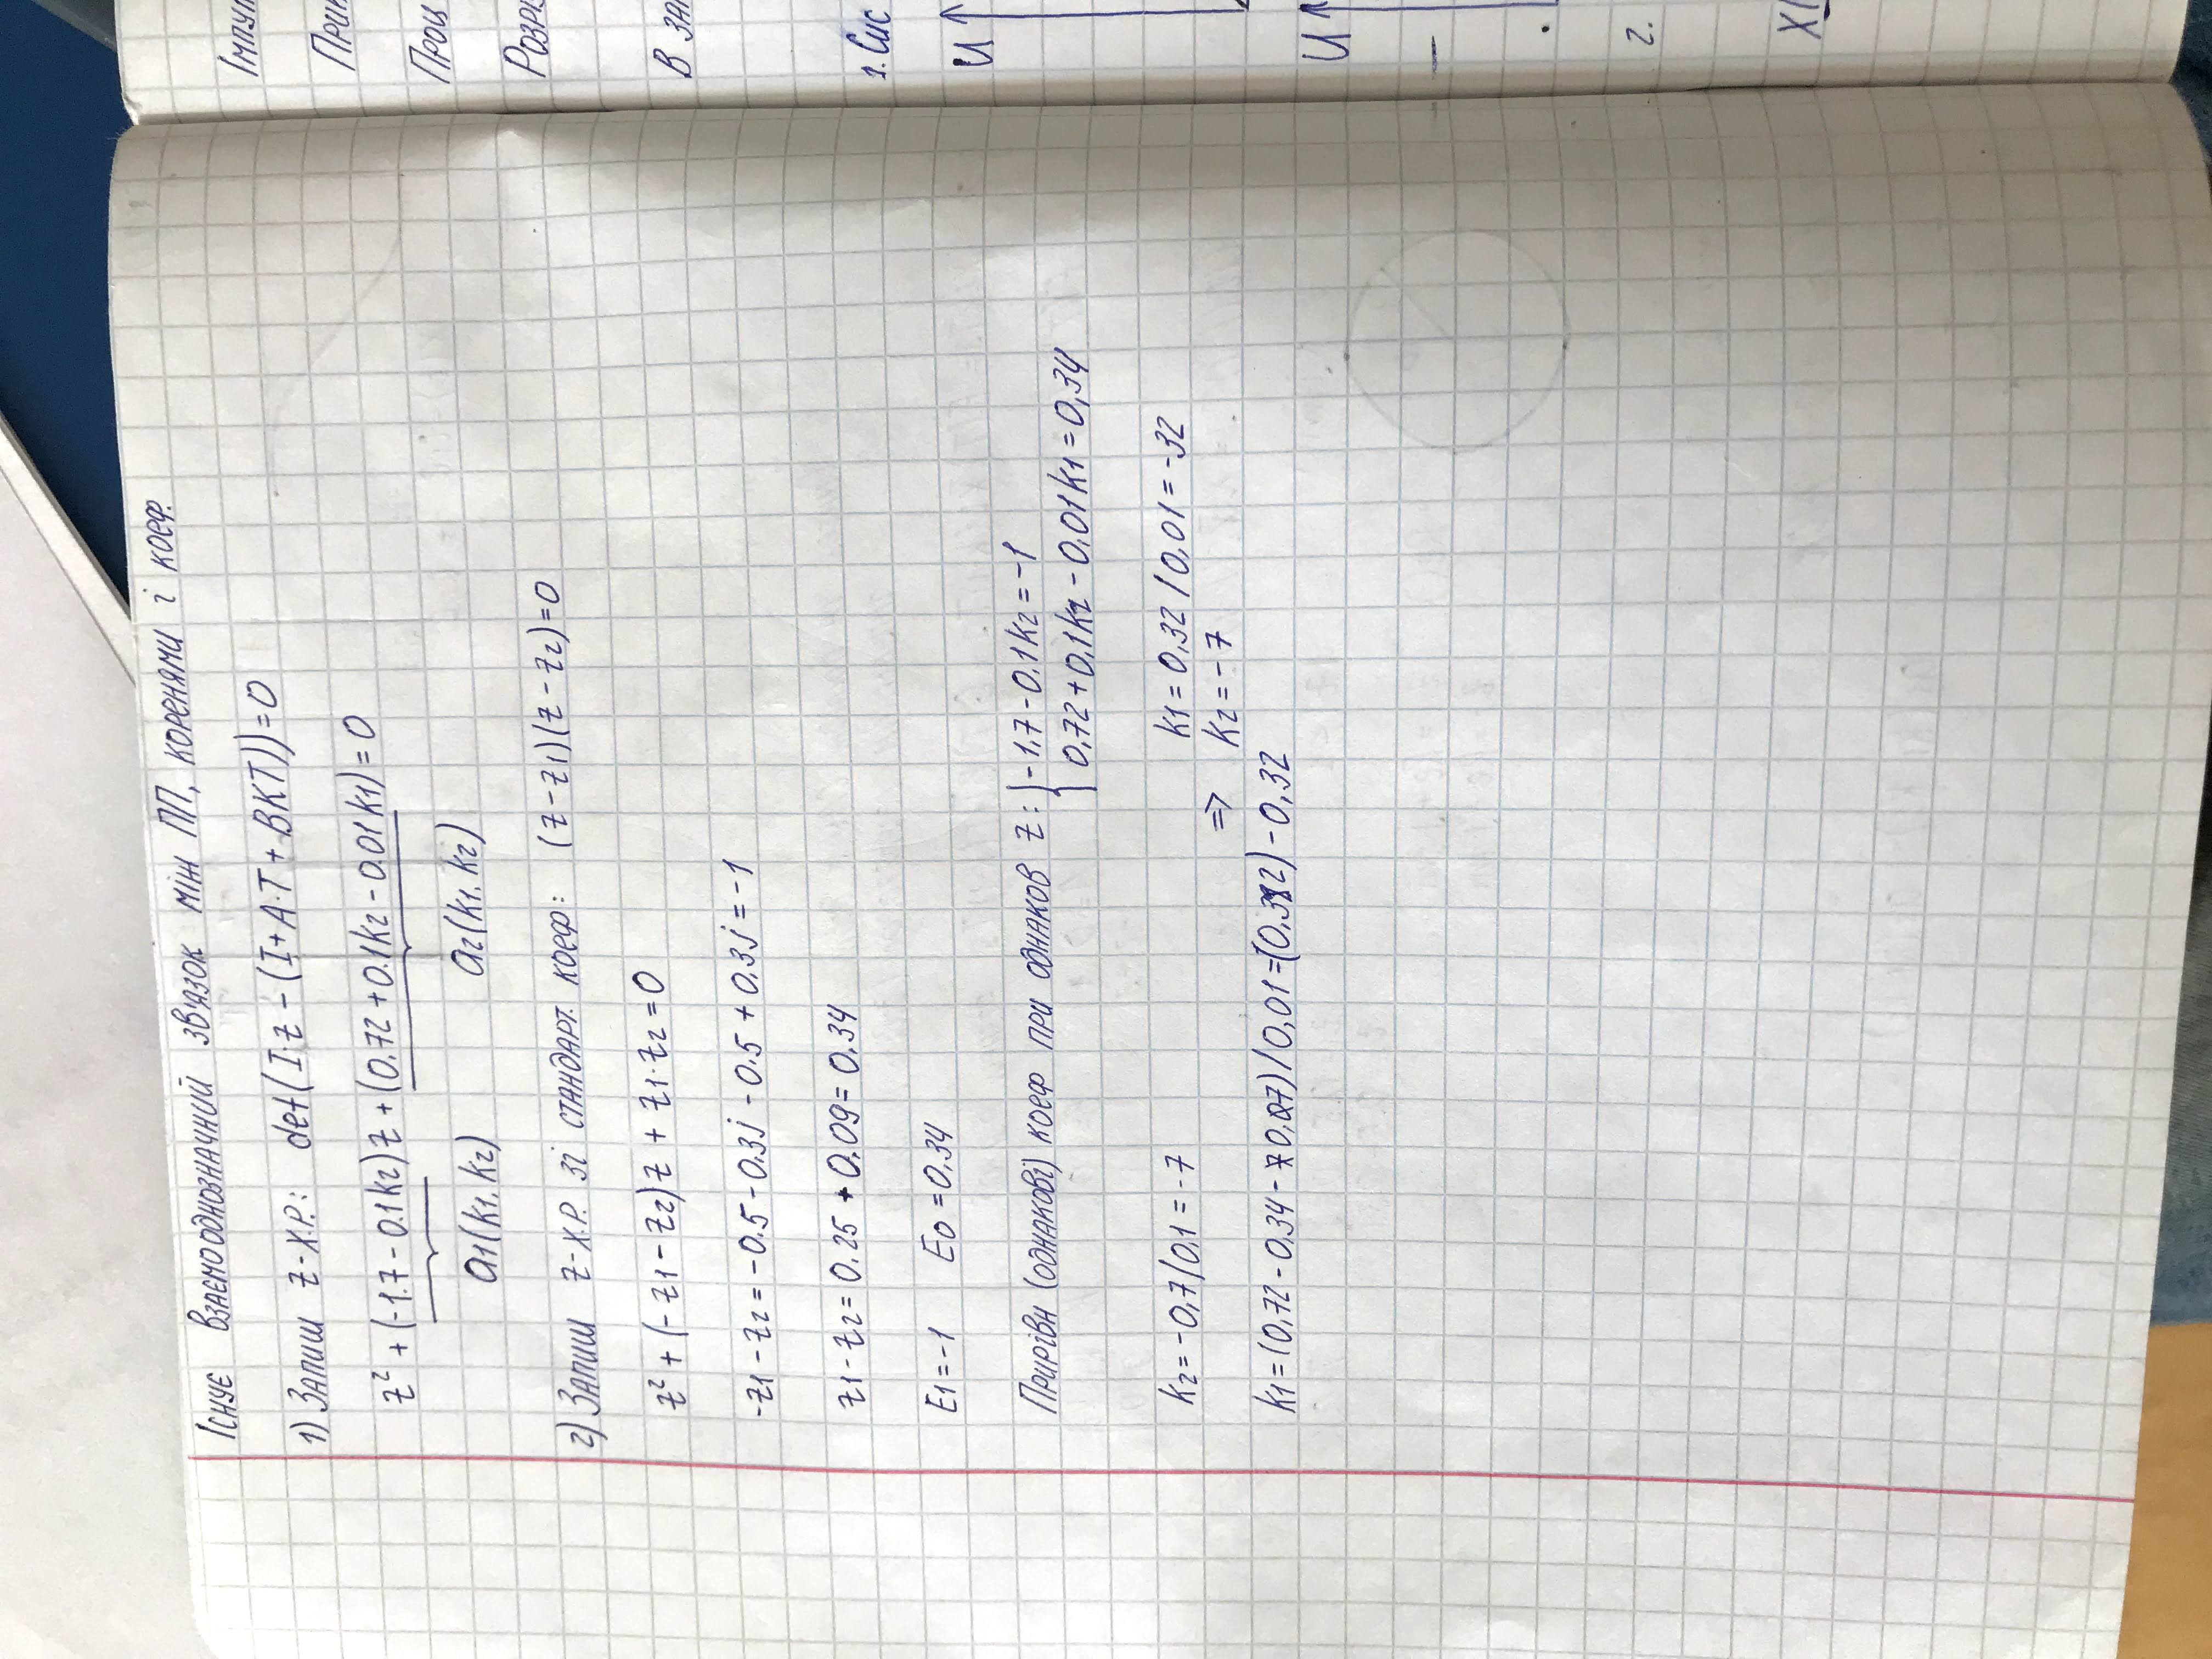 Існує взаємооднозначний зв'язок між ПП, коренями і коеф.
1) Запиш z-Х.Р.: det(I·z - (I+A·T + BKT))=0
z² + (-1.7 - 0.1k2)z + (0.72 + 0.1k2 - 0.01k1) = 0
a1(k1, k2) a2(k1, k2)
2) Запиш z-Х.Р. зі стандарт. коеф: (z-z1)(z-z2)=0
z² + (-z1 - z2)z + z1·z2 = 0
-z1 - z2 = -0.5 - 0.3j - 0.5 + 0.3j = -1
z1 - z2 = 0.25 + 0.09 = 0.34
E1 = -1 E0 = 0,34
Прирівн (однакові) коеф при однаков z: { -1,7 - 0,1k2 = -1
0,72 + 0,1k2 - 0,01k1 = 0,34
k2 = -0,7/0,1 = -7
k1 = 0,32 / 0,01 = -32
=> k2 = -7
k1 = (0,72 - 0,34 - 0,7) / 0,01 = (0,32) - 0,32
Імпу
При
Проц
Розрі
В за
1. Сис
U
U
2.
X1